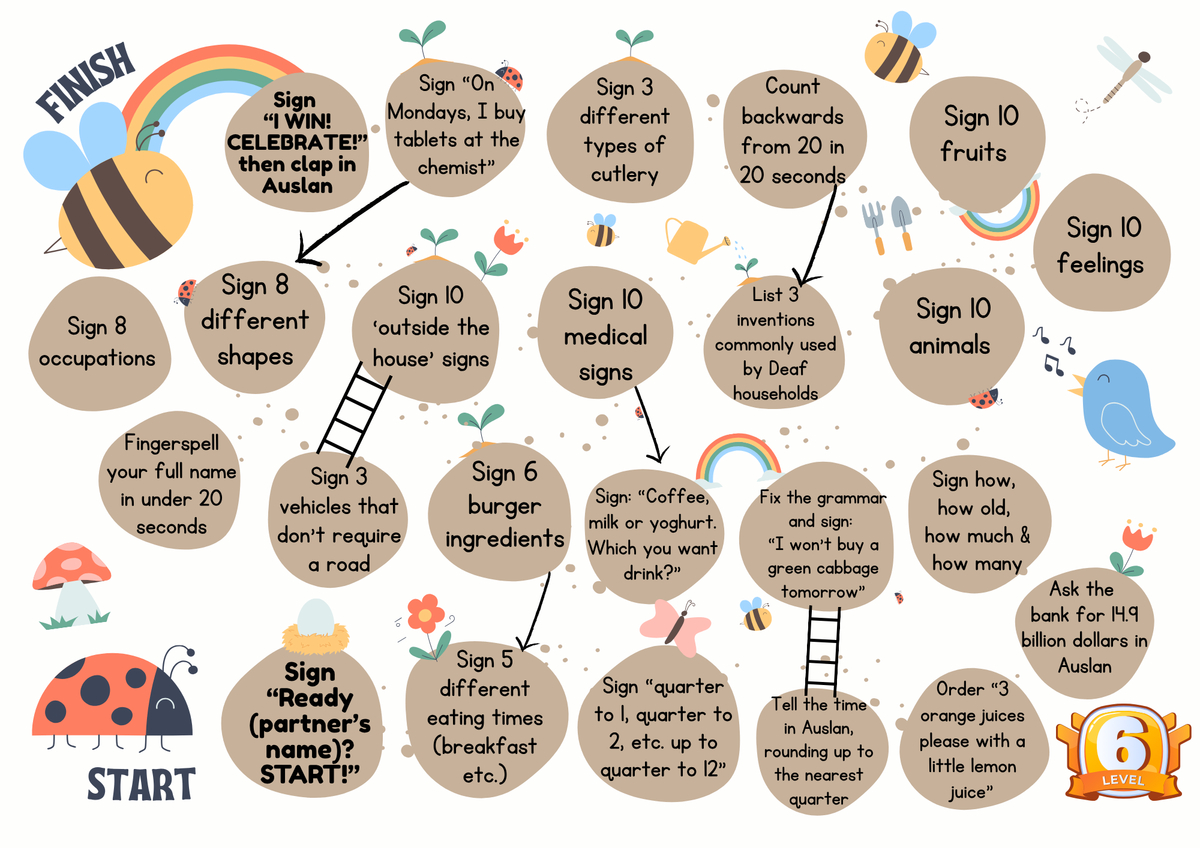 FINISH
Sign
“I WIN!
CELEBRATE!”
then clap in
Auslan
Sign “On
Mondays, I buy
tablets at the
chemist”
Sign 3
different
types of
cutlery
Count
backwards
from 20 in
20 seconds
Sign 10
fruits
Sign 10
feelings
Sign 8
occupations
Sign 8
different
shapes
Sign 10
‘outside the
house’ signs
Sign 10
medical
signs
List 3
inventions
commonly used
by Deaf
households
Sign 10
animals
Fingerspell
your full name
in under 20
seconds
Sign 3
vehicles that
don’t require
a road
Sign 6
burger
ingredients
Sign: “Coffee,
milk or yoghurt.
Which you want
drink?”
Fix the grammar
and sign:
“I won’t buy a
green cabbage
tomorrow”
Sign how,
how old,
how much &
how many
Ask the
bank for 14.9
billion dollars in
Auslan
START
Sign
“Ready
(partner’s
name)?
START!”
Sign 5
different
eating times
(breakfast
etc.)
Sign “quarter
to 1, quarter to
2, etc. up to
quarter to 12”
Tell the time
in Auslan,
rounding up to
the nearest
quarter
Order “3
orange juices
please with a
little lemon
juice”
6
LEVEL